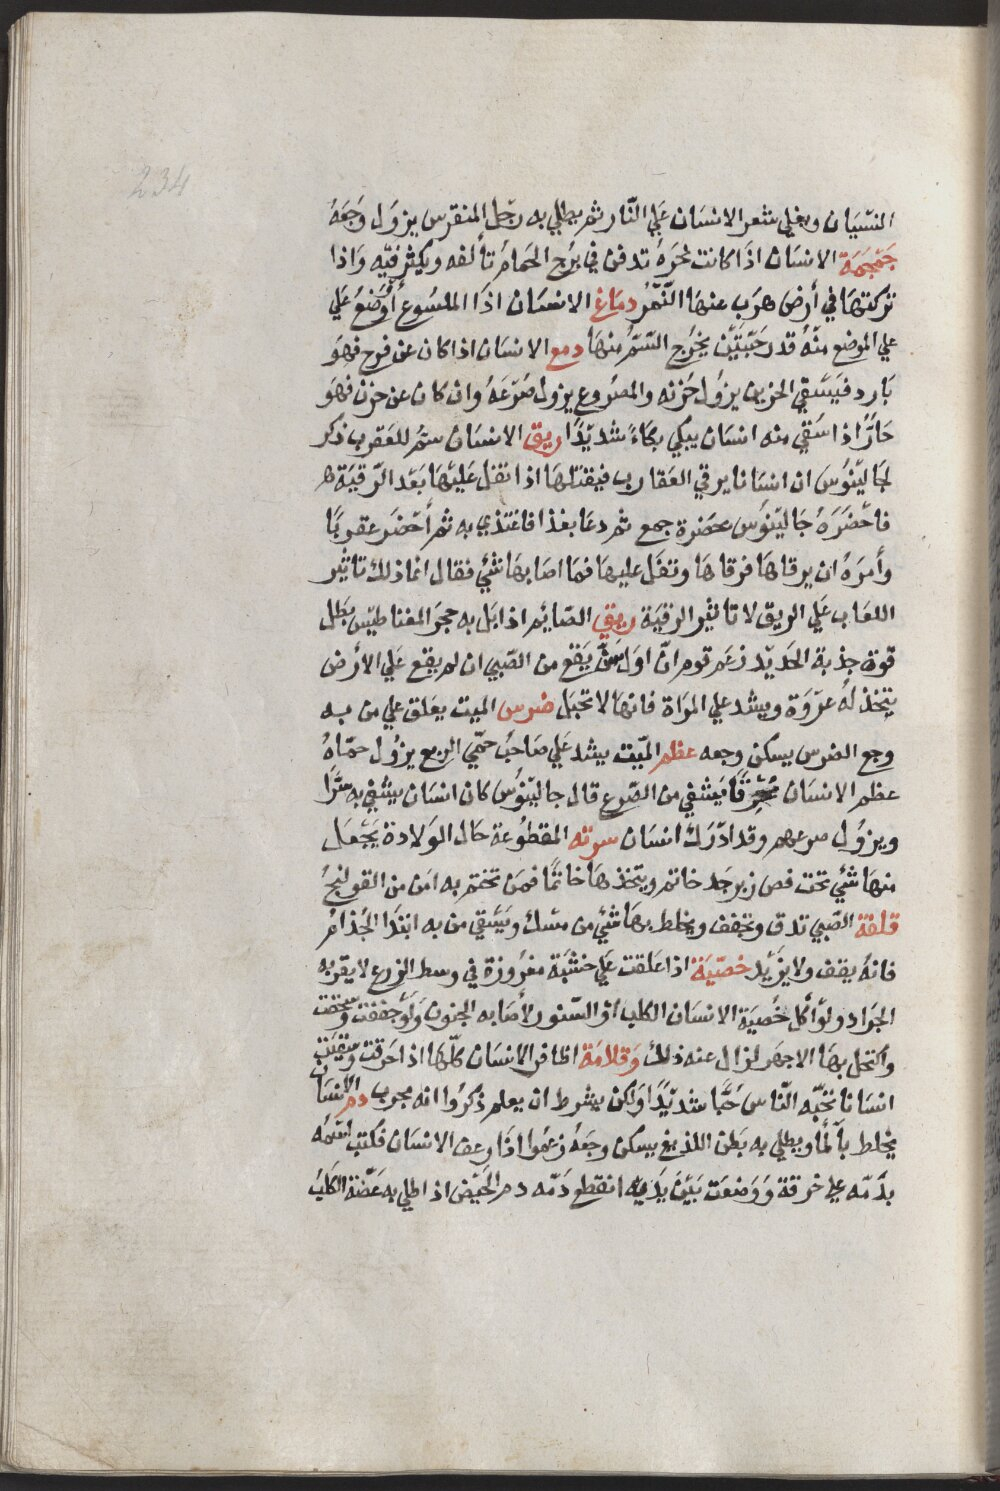 234
النسّيان ويغلي شعر الانسان عَلي النّار ثم يطلي به رجْل المنقرس يزوَل وَجَعَهُ
جَمْجَمَة الانسَان اذَا كانت نخرَهُ تدفن في بُرْج الحَمام تألفه ويكثر فيّه وَاذا
تركتهَا في أرض هرَب عنهَا النّمُر دمَاغ الانسَان اذَا الملسُوع أوُضعُ عَلي
علي الموضع منهُ قدر حَبّتَيْن يخرُج السّمُ منهَا دمع الانسَان اذا كان عن فرح فهوَ
بَارد فيَسَقي الحزين يزوُل حَزنه والمصرُوع يزول صَرْعَهُ وان كان عن حزن فهَو
حَارّ اذا سَقي منه انسَان يبكي بكاءً شديدًا ريق الانسَان سمّ للعقرب ذكر
لجَاليّنوُس ان انسَانا يرقي العَقارب فيقتلهَا اذا تفل عَليْهَا بَعْد الرّقيَة
فاحْضَرَهُ جَاليّنوُس بحَضرة جمع ثم دعَا بغذا فاغتذي به ثم أحْضَر عقربًا
وأمرَهُ ان يرقاهَا فرقاهَا وتفَل عليهَا فما اصَابهَا شيْ فقال انما ذلك تاثيْر
اللعَاب عَلي الريق لا تاثيْر الرقيَة ريق الصّايم اذا بَل به حجر المغناطيسّ بَطل
قوّة جذبة الحَديْد زعَم قوم انّ اول سَنّ يَقع من الصّبي ان لم يقع عَلي الأرض
يتخذ لهُ عرْوَة ويشد علي المرَاة فانهَا لا تحبَل ضرس الميت يعَلق علي من به
وجع الضرس يسكن وجعه عظم الميّت يشد عَلي صَاحبُ حمّي الربع يزوُل حمّاهُ
عظم الانسَان مُحْرَقًا يَشفي من الصّرع قال جاليّنوُس كان انسَان يشفي به سرًّا
ويزوُل صرعهم وقد ادْرَك انسَان سرته المقطوُعة حَال الوَلادة يَجْعَل
منهَا شئي تحت فص زبرجَد خاتم ويتخذهَا خاتمًا فمَن تختم به امَن من القولنجُ
قلفة الصّبي تدق وتجفف ويخلط بهَا شئي من مسْك ويَسّقي من به ابتدَا الجُذام
فانهُ يقف ولا يزَيْد خصيَة اذا عَلقت عَلي خشَبَة مغرُوزة في وسط الزرع لا يقربه
الجَراد ولوْ أكَل خُصيَة الانسَان الكلب أوْ السّنور لأصَابه الجنون وَلوْ جففت وسُحقت
واكتحل بهَا الاجهَر لزال عنه ذلك وَقلامَة اظافر الانسَان كلّهَا اذا احَرقت وَسقيَت
انسَانا تحبّه النّاس حُبًّا شديدًا وَلكن بشرط ان يعلم ذكرُوا انه مجرب دم الانسَان
يخلط بألمأ ويطلي به بَطن اللديغ يسكن وجَعَهُ زعمُوا اذَا رعف الانسَان فكتب اسْمُه
بدَمّه علي خرقة وَوضعَت بَيْن يدَيْه انقطع دَمّه دم الحَيْض اذا طلي به عَضّة الكَلبُ